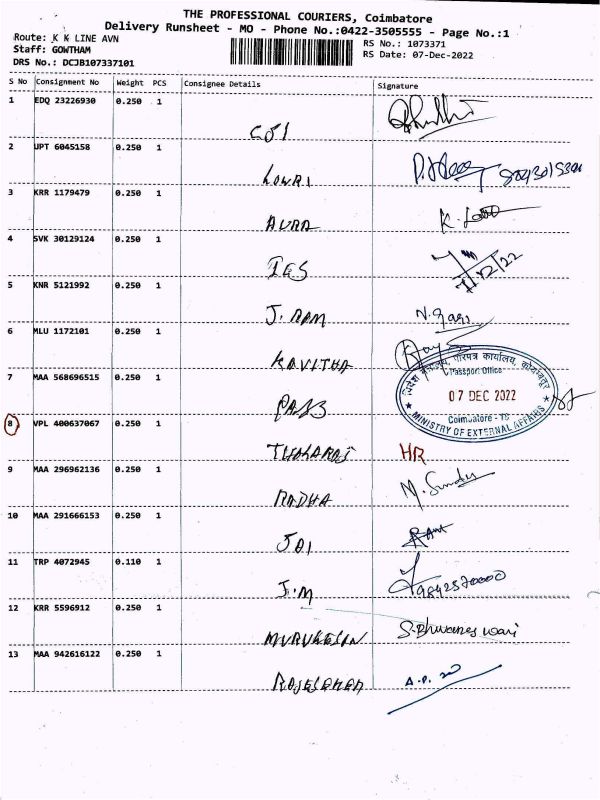 THE PROFESSIONAL COURIERS, Coimbatore
Delivery Runsheet - MO - Phone No.:0422-3505555 - Page No.:1
Route: K K LINE AVN
RS No.: 1073371
Staff: GOWTHAM
RS Date: 07-Dec-2022
DRS No.: DCJB107337101
S No Consignment No Weight PCS Consignee Details Signature
1 EDQ 23226930 0.250 1
2 UPT 6045158 0.250 1
LOWRI
3 KRR 1179479 0.250 1
4 SVK 30129124 0.250 1
IES
7/12/22
5 KNR 5121992 0.250 1
J. RAM
6 MLU 1172101 0.250 1
KAVITHA
7 MAA 568696515 0.250 1
PASS
विदेश मंत्रालय, पारपत्र कार्यालय, कोयंबतूर
Passport Office
07 DEC 2022
Coimbatore - TS
MINISTRY OF EXTERNAL AFFAIRS
8 VPL 400637067 0.250 1
HR
9 MAA 296962136 0.250 1
RADHA M. Sundu
10 MAA 291666153 0.250 1
JAI
11 TRP 4072945 0.110 1
J.M 9842570000
12 KRR 5596912 0.250 1
MURUGESAN S. Bhuvaneswari
13 MAA 942616122 0.250 1